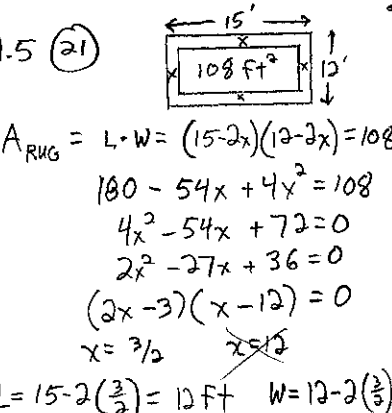 15'
1.5 (21)
x
x 108 ft² x 12'
x
A_RUG = L·W = (15-2x)(12-2x)=108
180 - 54x + 4x² = 108
4x² - 54x + 72 = 0
2x² - 27x + 36 = 0
(2x-3)(x-12) = 0
x = 3/2 x=12
L = 15-2(3/2) = 12 ft W = 12-2(3/2)